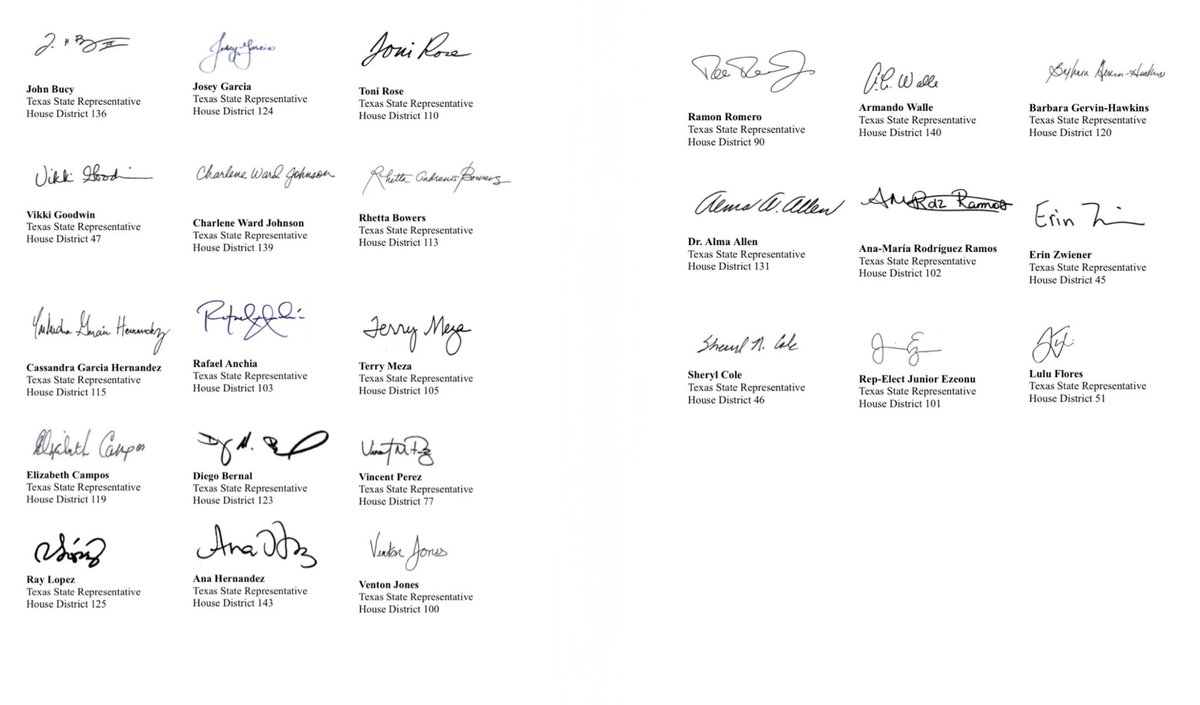 J. H Bucy II
Josey Garcia
Toni Rose
John Bucy
Texas State Representative
House District 136
Josey Garcia
Texas State Representative
House District 124
Toni Rose
Texas State Representative
House District 110
Vikki Goodwin
Charlene Ward Johnson
Rhetta Andrews Bowers
Vikki Goodwin
Texas State Representative
House District 47
Charlene Ward Johnson
Texas State Representative
House District 139
Rhetta Bowers
Texas State Representative
House District 113
Garcia Hernandez
Terry Meza
Cassandra Garcia Hernandez
Texas State Representative
House District 115
Rafael Anchia
Texas State Representative
House District 103
Terry Meza
Texas State Representative
House District 105
Elizabeth Campos
Elizabeth Campos
Texas State Representative
House District 119
Diego Bernal
Texas State Representative
House District 123
Vincent Perez
Texas State Representative
House District 77
Ana
Venton Jones
Ray Lopez
Texas State Representative
House District 125
Ana Hernandez
Texas State Representative
House District 143
Venton Jones
Texas State Representative
House District 100
A.C. Walle
Barbara Gervin-Hawkins
Ramon Romero
Texas State Representative
House District 90
Armando Walle
Texas State Representative
House District 140
Barbara Gervin-Hawkins
Texas State Representative
House District 120
Alma A. Allen
AMRdz Ramos
Erin
Dr. Alma Allen
Texas State Representative
House District 131
Ana-María Rodríguez Ramos
Texas State Representative
House District 102
Erin Zwiener
Texas State Representative
House District 45
Sheryl N. Cole
Sheryl Cole
Texas State Representative
House District 46
Rep-Elect Junior Ezeonu
Texas State Representative
House District 101
Lulu Flores
Texas State Representative
House District 51